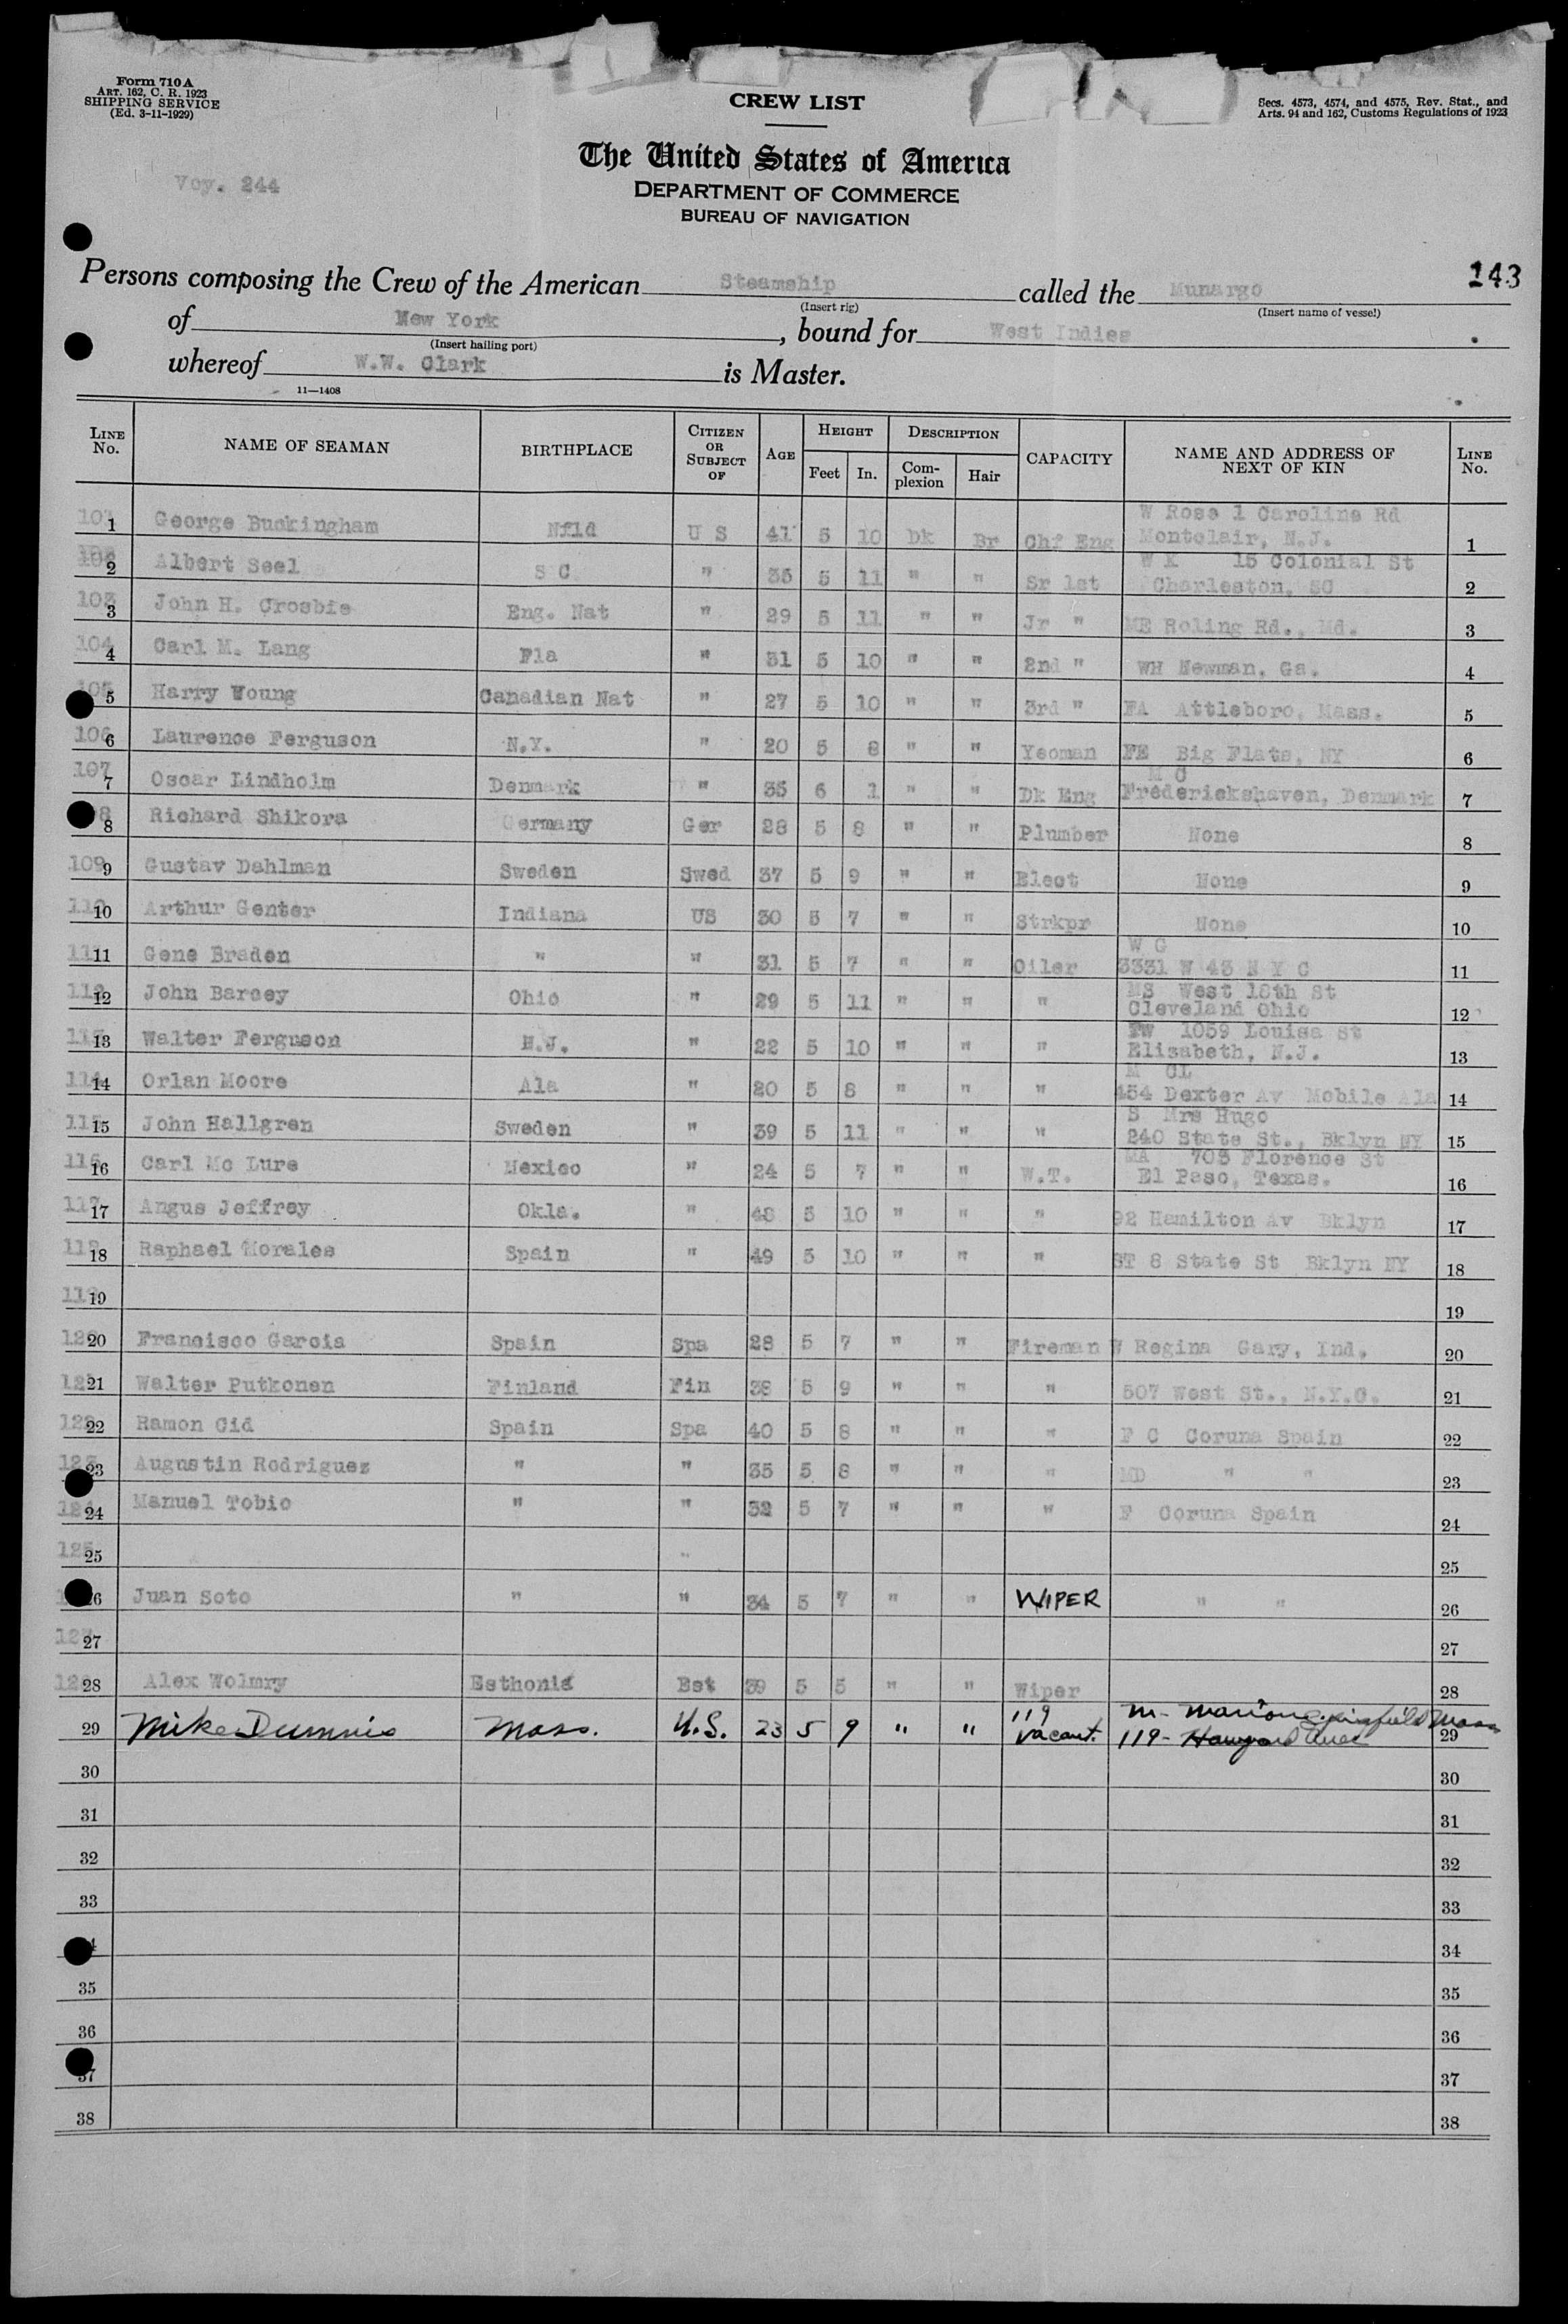 Form 710 A
ART. 162, C. R. 1923
SHIPPING SERVICE
(Ed. 3-11-1929)
CREW LIST
Secs. 4573, 4574, and 4575, Rev. Stat., and
Arts. 94 and 162, Customs Regulations of 1923
The United States of America
DEPARTMENT OF COMMERCE
BUREAU OF NAVIGATION
Voy. 244
143
Persons composing the Crew of the American Steamship called the Munargo
(Insert rig) (Insert name of vessel)
of New York, bound for West Indies
(Insert hailing port)
whereof W.W. Clark is Master.
11—1408
LINE No. NAME OF SEAMAN BIRTHPLACE CITIZEN OR SUBJECT OF AGE HEIGHT Feet In. DESCRIPTION Complexion Hair CAPACITY NAME AND ADDRESS OF NEXT OF KIN LINE No.
101 1 George Buckingham Nfld U S 41 5 10 Dk Br Chf Eng W Rose 1 Carolina Rd Montclair, N.J. 1
102 2 Albert Seel S C " 35 5 11 " " Sr 1st W K 15 Colonial St Charleston, SC 2
103 3 John H. Crosbie Eng. Nat " 29 5 11 " " Jr " ME Roling Rd., Md. 3
104 4 Carl M. Lang Fla " 31 5 10 " " 2nd " WH Newman, Ga. 4
105 5 Harry Young Canadian Nat " 27 5 10 " " 3rd " FA Attleboro, Mass. 5
106 6 Laurence Ferguson N.Y. " 20 5 8 " " Yeoman FE Big Flats, NY 6
107 7 Oscar Lindholm Denmark " 35 6 1 " " Dk Eng M C Frederickshaven, Denmark 7
8 8 Richard Shikora Germany Ger 28 5 8 " " Plumber None 8
109 9 Gustav Dahlman Sweden Swed 37 5 9 " " Elect None 9
110 10 Arthur Genter Indiana US 30 5 7 " " Strkpr None 10
111 11 Gene Braden " " 31 5 7 " " Oiler W G 3331 W 43 N Y C 11
112 12 John Barcey Ohio " 29 5 11 " " " MS West 18th St Cleveland Ohio 12
113 13 Walter Ferguson N.J. " 22 5 10 " " " TW 1059 Louisa St Elisabeth, N.J. 13
114 14 Orlan Moore Ala " 20 5 8 " " " M CL 454 Dexter Av Mobile Ala 14
115 15 John Hallgren Sweden " 39 5 11 " " " S Mrs Hugo 240 State St., Bklyn NY 15
116 16 Carl Mc Lure Mexico " 24 5 7 " " W.T. MA 703 Florence St El Paso, Texas. 16
117 17 Angus Jeffrey Okla. " 48 5 10 " " " 92 Hamilton Av Bklyn 17
118 18 Raphael Morales Spain " 49 5 10 " " " ST 8 State St Bklyn NY 18
119 19 19
120 20 Francisco Garcia Spain Spa 28 5 7 " " Fireman W Regina Gary, Ind. 20
121 21 Walter Putkonen Finland Fin 38 5 9 " " " 507 West St., N.Y.C. 21
122 22 Ramon Cid Spain Spa 40 5 8 " " " F C Coruna Spain 22
123 23 Augustin Rodriguez " " 35 5 8 " " " MD " " 23
124 24 Manuel Tobio " " 32 5 7 " " " F Coruna Spain 24
125 25 " 25
26 Juan Soto " " 34 5 7 " " WIPER " " 26
127 27 27
128 28 Alex Wolmry Esthonia Est 39 5 5 " " Wiper 28
29 Mike Dumnis Mass. U.S. 23 5 9 " " 119 vacant. M- Marion Springfield Mass 119- Ave 29
30 30
31 31
32 32
33 33
34
35 35
36 36
37 37
38 38